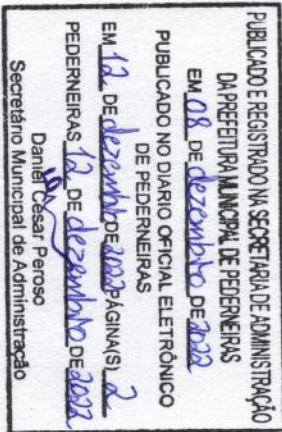 PUBLICADO E REGISTRADO NA SECRETARIA DE ADMINISTRAÇÃO
DA PREFEITURA MUNICIPAL DE PEDERNEIRAS
EM 08 DE dezembro DE 2022
PUBLICADO NO DIÁRIO OFICIAL ELETRÔNICO
DE PEDERNEIRAS
EM 12 DE dezembro DE 2022 PÁGINA(S) 2
PEDERNEIRAS 12 DE dezembro DE 2022
Daniel Cesar Peroso
Secretário Municipal de Administração